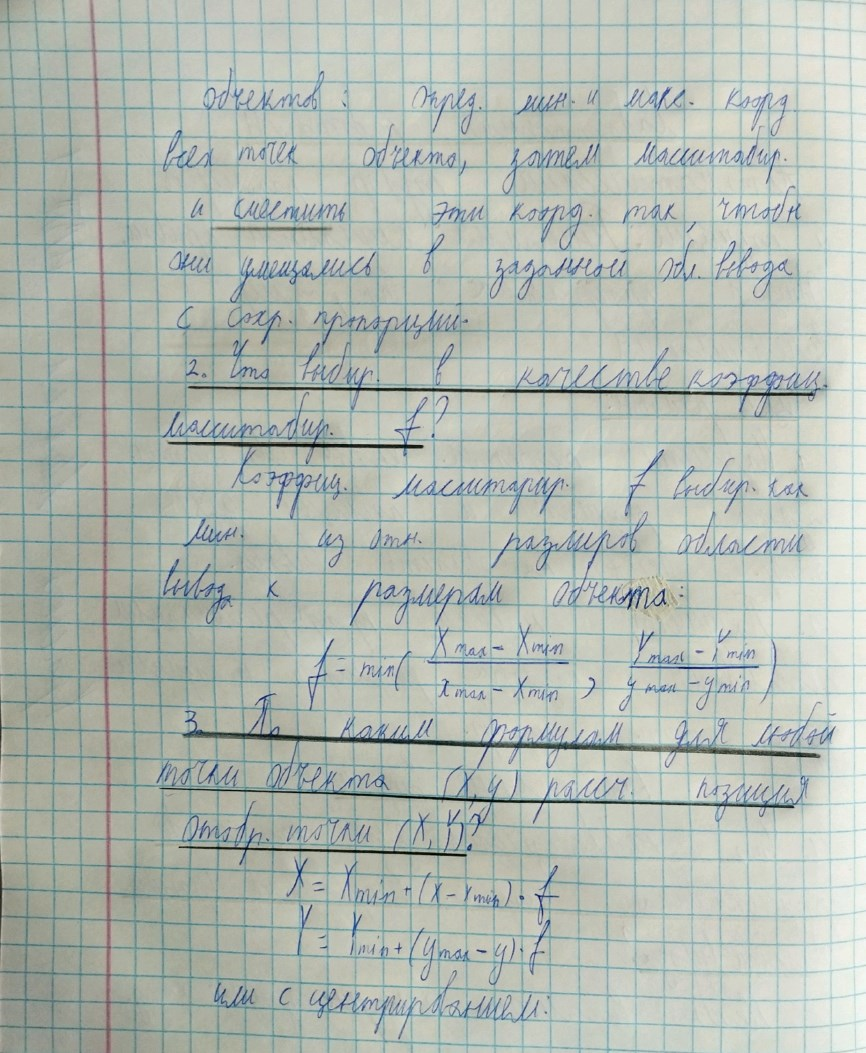 объектов : опред. мин. и макс. коорд.
всех точек объекта, затем масштабир.
и сместить эти коорд. так, чтобы
они умещались в заданной обл. вывода
с сохр. пропорций.
2. Что выбир. в качестве коэффиц.
масштабир. f?
Коэффиц. масштабир. f выбир. как
мин. из отн. размеров области
вывода к размерам объекта:
f = min( (Xmax - Xmin)/(xmax - xmin) , (Ymax - Ymin)/(ymax - ymin) )
3. По каким формулам для любой
точки объекта (x, y) рассч. позиция
отобр. точки (X, Y)?
X = Xmin + (x - xmin) · f
Y = Ymin + (ymax - y) · f
или с центрированием: